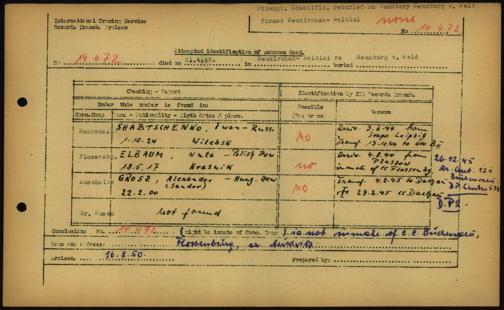 Attempt. Identific. reburied on Cemetery Neunburg v. Wald
International Tracing Service
Records Branch, Arolsen
former Neukirchen-Balbini
none
14.472
Attempted identification of unknown dead.
No 14 472 died on 21.4.45. Neukirchen-Balbini re Neunburg v. Wald
Checking - Report
Identification by ITS Records Branch.
Under this number is found in:
Possible
Yes or no
Reason
Conc.Camp Name - Nationality - Birth dates & place.
Buchenw. SHABTSCHENKO, Iwan - Russ.
1.10.24 Witebsk
no
Arriv. 3.6.44 from
Stapo Leipzig
Transf. 13.11.44 to
Flossenbg. ELBAUM, Nuta - Polish Jew
18.5.17 Krasnik
no
Arriv. from
Plaszow
inmate of CC Flossenbg
26.12.45
Auschwitz GROSZ, Alexander - Hung. Jew
(Sandor)
22.2.00
no
Transf. 4.2.45 to Dachau
29.3.45 cc Dachau
D.P.2.
Gr. Rosen not found
Conclusion: No. 14.472 (might be inmate of Conc. Camp) is not inmate of C.C. Buchenwald,
Flossenburg, or Auschwitz
Name and adress:
Arolsen, 16.8.50.
Prepared by: